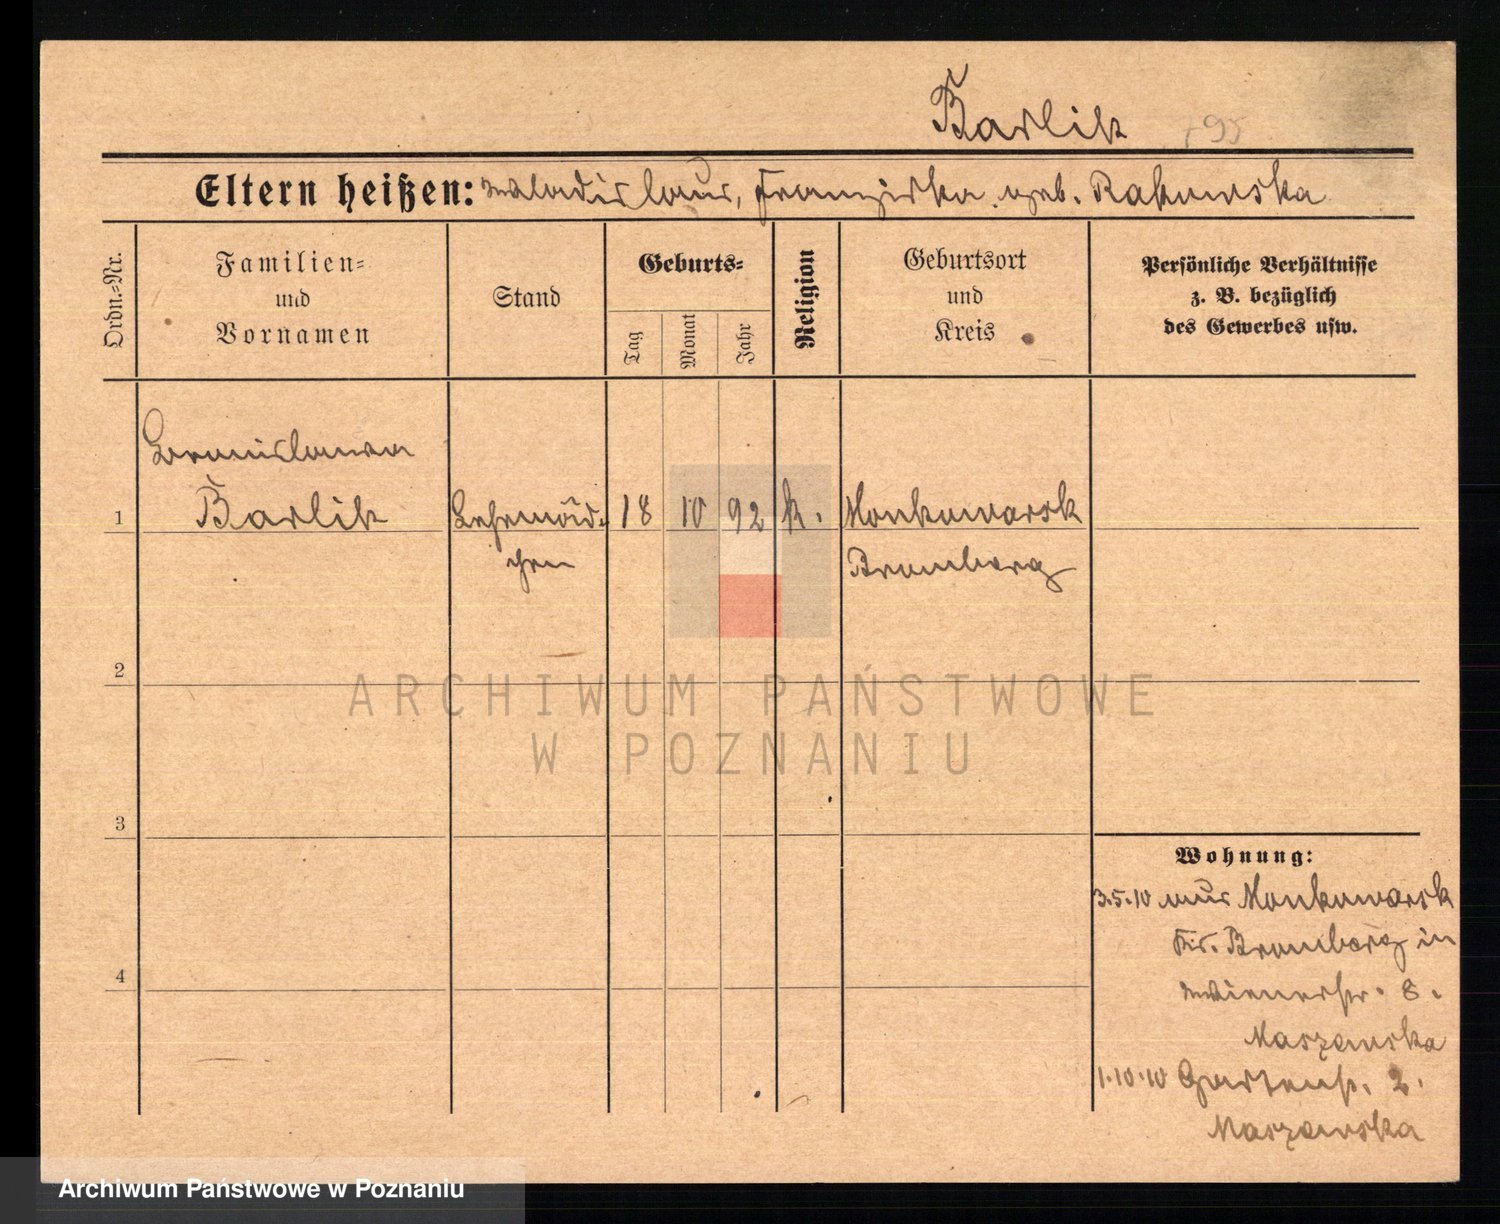 Barlik 795
Eltern heißen: Wladislaus, Franziska geb. Rakowska
Ordn.-Nr.
Familien-
und
Vornamen
Stand
Geburts-
Tag
Monat
Jahr
Religion
Geburtsort
und
Kreis
Persönliche Verhältnisse
z. B. bezüglich
des Gewerbes usw.
Bronislawa
1 Barlik Lehrmäd- 18 10 92 k. Monkowarsk
chen Bromberg
2
3
4
Wohnung:
3.5.10 aus Monkowarsk
Kr. Bromberg in
Wienerstr. 8.
1.10.10 Gartenstr. 2.
ARCHIWUM PAŃSTWOWE
W POZNANIU
Archiwum Państwowe w Poznaniu